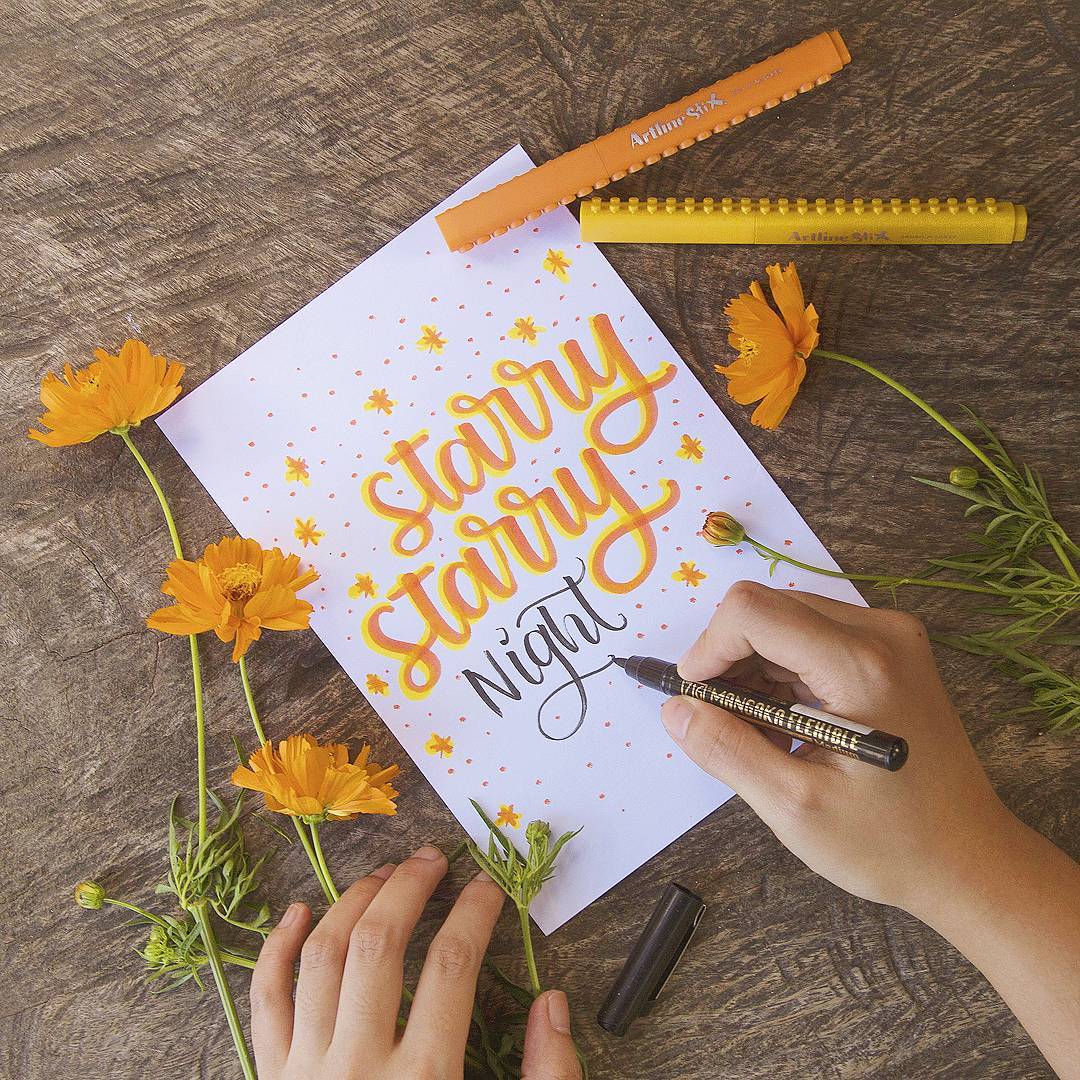 Artline Stix
Artline Stix
starry
starry
Night
MANGAKA FLEXIBLE
Medium